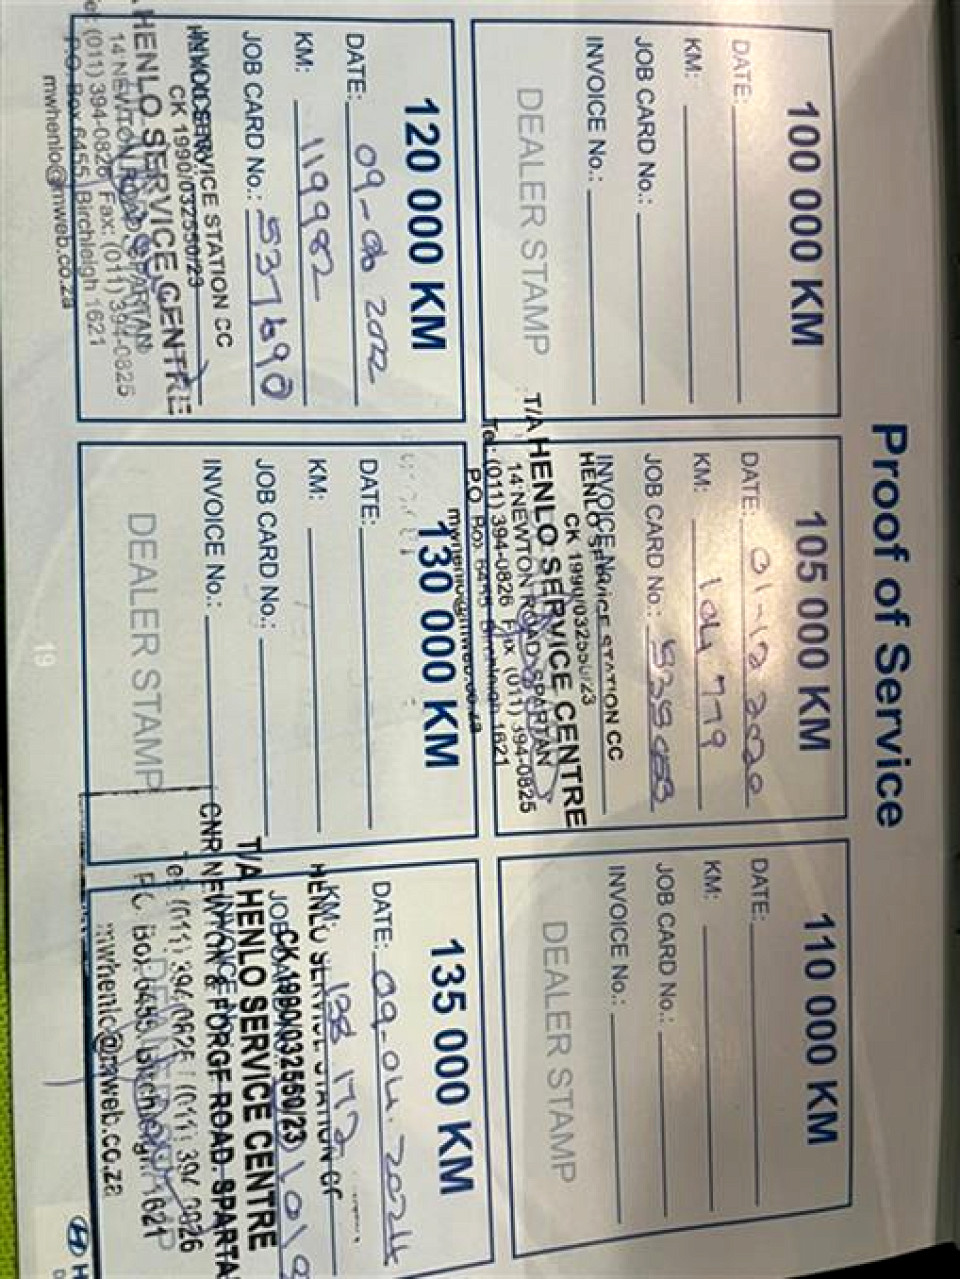 Proof of Service
100 000 KM
DATE:
KM:
JOB CARD No.:
INVOICE No.:
DEALER STAMP
105 000 KM
DATE: 01-12 2020
KM: 104 779
JOB CARD No.:
INVOICE No.:
HENLO SERVICE STATION CC
CK 1990/032550/23
T/A HENLO SERVICE CENTRE
14 NEWTON ROAD, SPARTAN
Tel: (011) 394-0826 Fax (011) 394-0825
P.O. Box 6455 Birchleigh 1621
mwhenlo@mweb.co.za
110 000 KM
DATE:
KM:
JOB CARD No.:
INVOICE No.:
DEALER STAMP
120 000 KM
DATE: 09-06 2022
KM: 119982
JOB CARD No.: 537690
SERVICE STATION CC
CK 1990/032550/23
HENLO SERVICE CENTRE
14 NEWTON ROAD SPARTAN
(011) 394-0826 Fax: (011) 394-0825
P.O. Box 6455 Birchleigh 1621
mwhenlo@mweb.co.za
130 000 KM
DATE:
KM:
JOB CARD No.:
INVOICE No.:
DEALER STAMP
135 000 KM
DATE: 09-04.2024
KM: 138 172
HENLO SERVICE STATION CC
CK 1990/032550/23
T/A HENLO SERVICE CENTRE
CNR NEWTON & FORGE ROAD. SPARTA
Tel: (011) 394 0825 / (011) 394 0826
P.O. Box 6455 Birchleigh 1621
mwhenlo@mweb.co.za
19
H